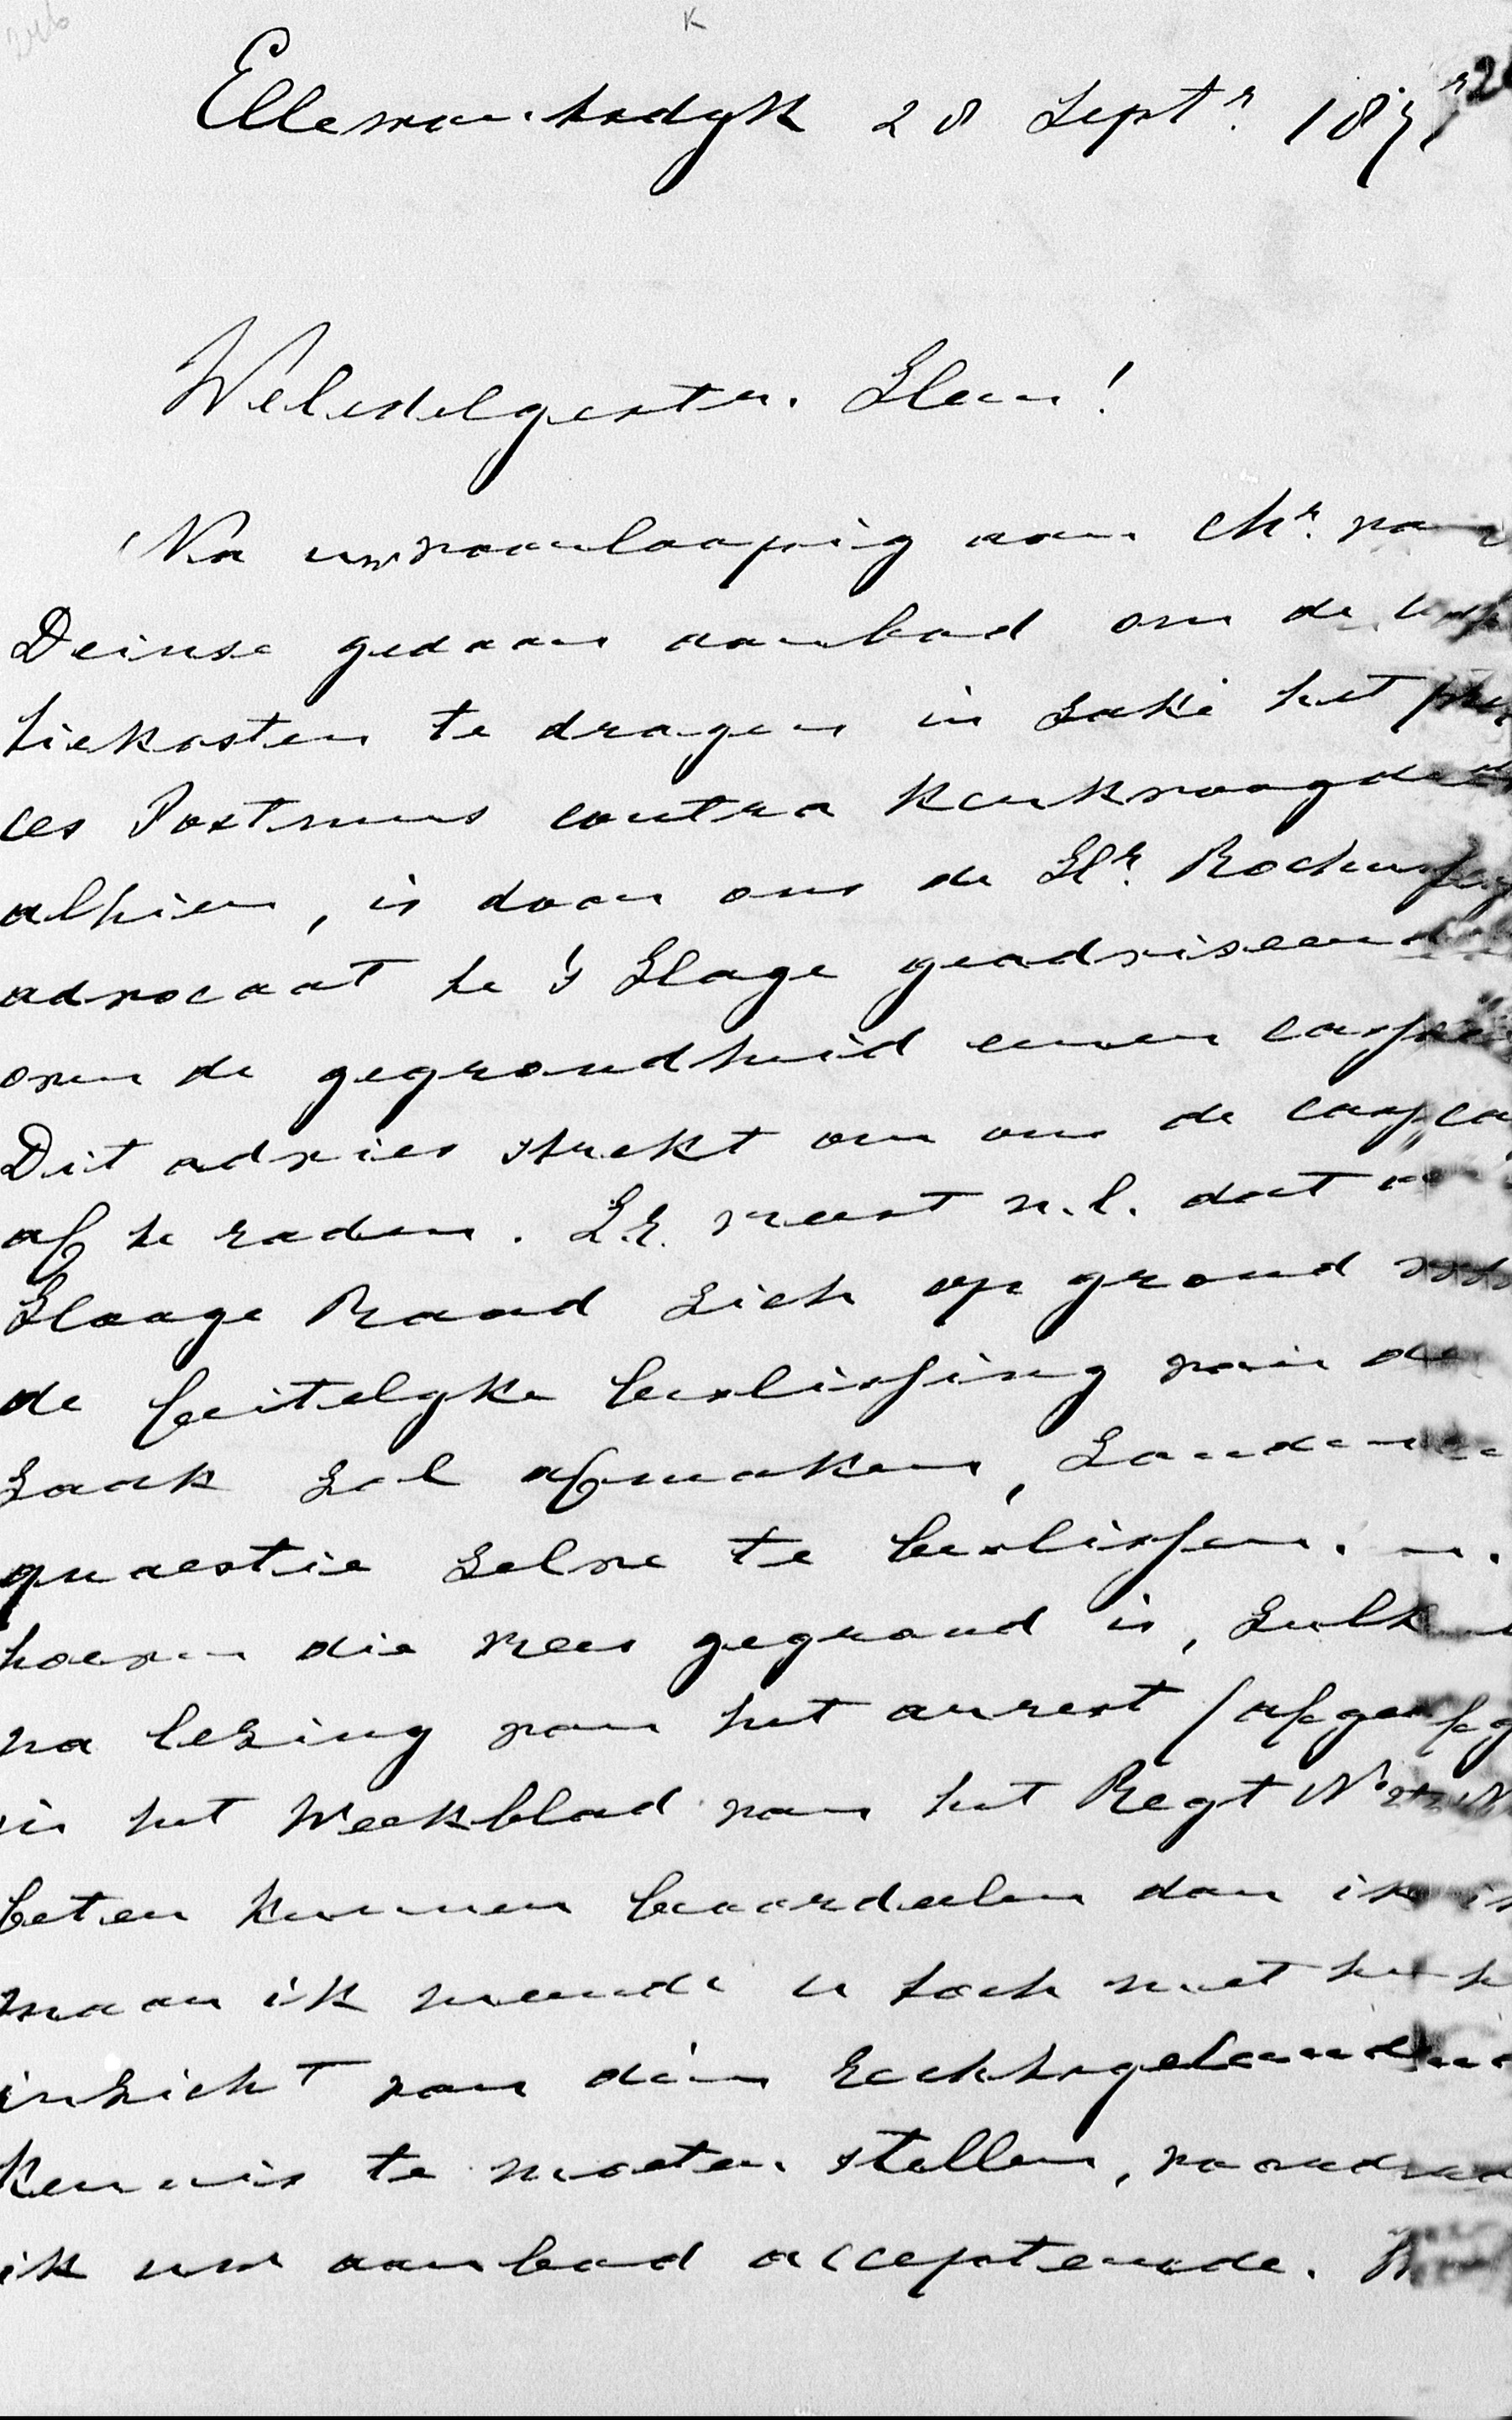 Ellewoutsdyk 28 Septr. 187
Weledelgestr. Heer!
Na uw voorloopig aan Mr. van
Deinse gedaan aanbod om de
tiekosten te dragen in zake het pro
ces Postmus contra Kerkvoogden
alhier, is door ons de Hr. Rochussen
advocaat te 's Hage geadviseerd
over de gegrondheid eener cassatie
Dit advies strekt om ons de cassca
af te raden. Z.E. vreest n.l. dat de
Hooge Raad zich op grond van
de feitelyke beslissing van de
zaak zal afmaken, zonder de
quaestie zelve te beslissen. In
hoever die vrees gegrond is, zult u
na lezing van het arrest (afge
in het Weekblad van het Regt No.
beter kunnen beoordeelen dan ik
maar ik meende u toch met het
inzicht van dien rechtsgeleerde in
kennis te moeten stellen, voordat
ik uw aanbod accepteerde.